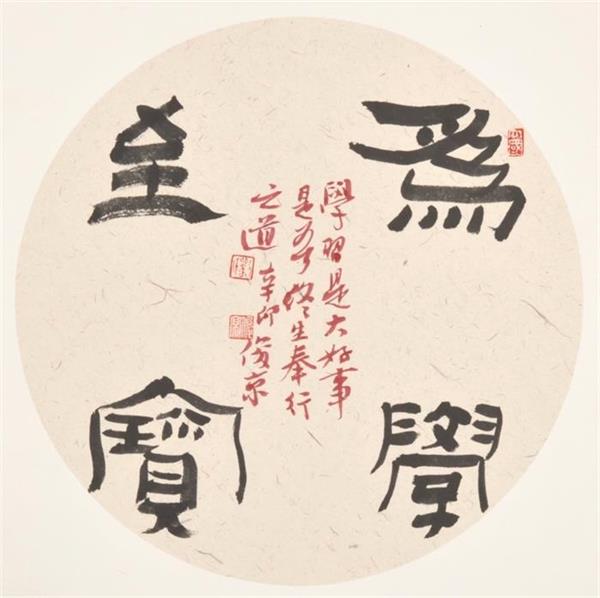 爲學
學習是大好事
是終生奉行
之道 辛卯 俊京
至寶